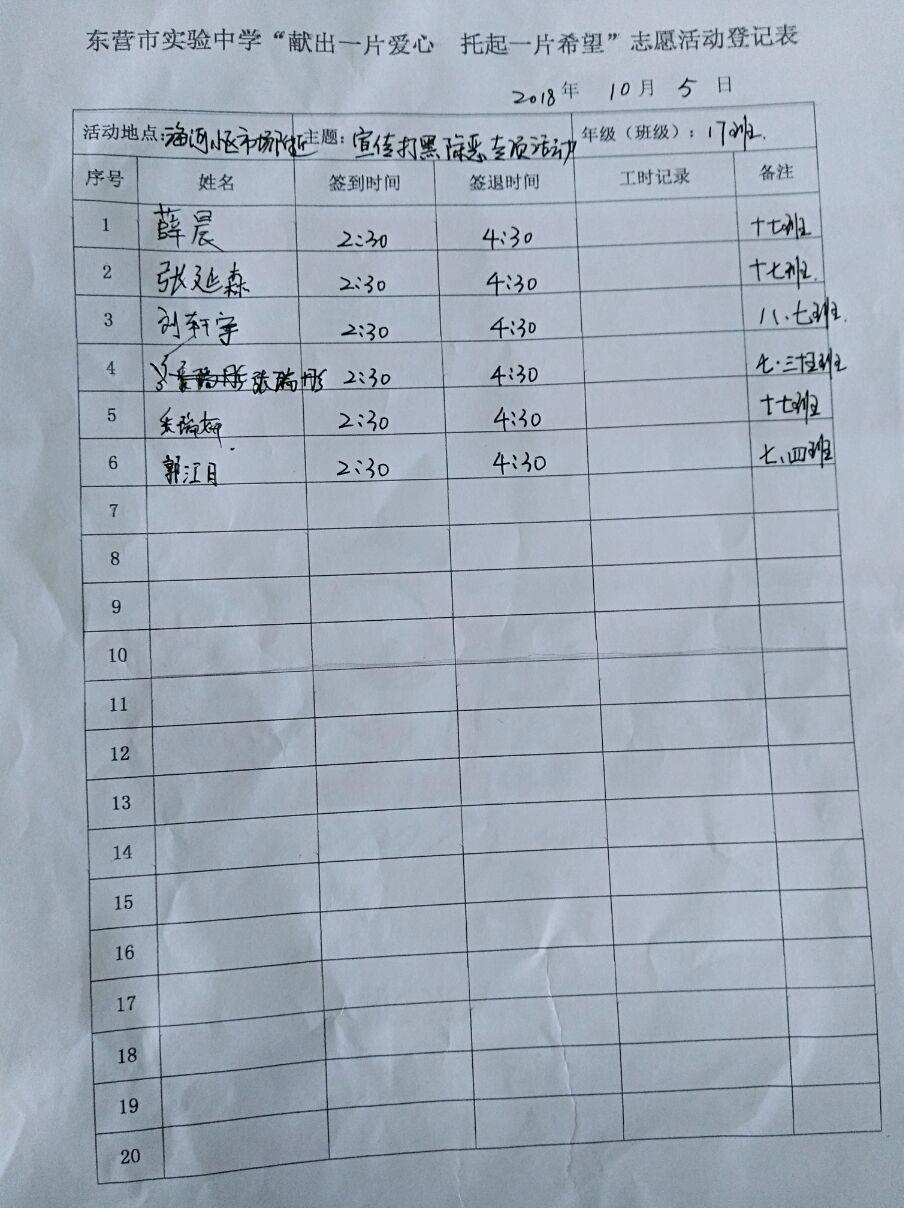 东营市实验中学“献出一片爱心 托起一片希望”志愿活动登记表
2018年 10月 5日
活动地点:海河小区市场附近 主题: 宣传打黑除恶专项活动 年级（班级）: 17班.
序号 姓名 签到时间 签退时间 工时记录 备注
1 薛晨 2:30 4:30 十七班
2 张延森 2:30 4:30 十七班.
3 刘轩宇 2:30 4:30 八、七班.
4 张瑞彤 2:30 4:30 七·三十五班
5 2:30 4:30 十七班
6 郭江月 2:30 4:30 七、四班
7
8
9
10
11
12
13
14
15
16
17
18
19
20